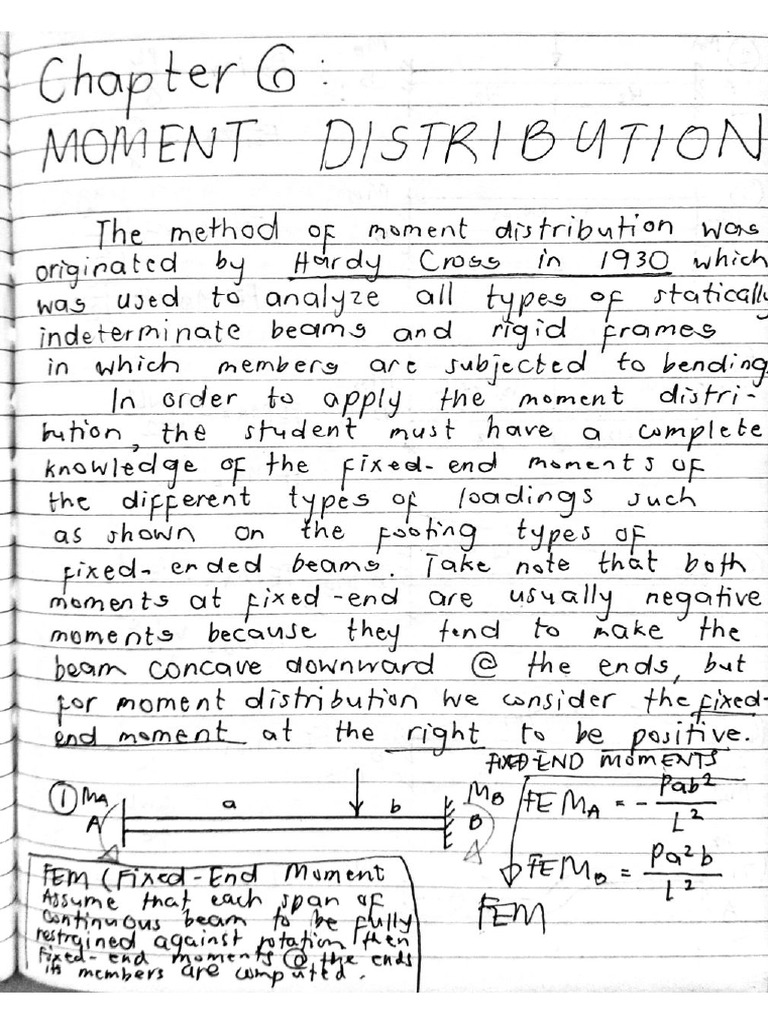 Chapter 6:
MOMENT DISTRIBUTION
The method of moment distribution was
originated by Hardy Cross in 1930 which
was used to analyze all types of statically
indeterminate beams and rigid frames
in which members are subjected to bending.
In order to apply the moment distri-
bution, the student must have a complete
knowledge of the fixed-end moments of
the different types of loadings such
as shown on the footing types of
fixed-ended beams. Take note that both
moments at fixed-end are usually negative
moments because they tend to make the
beam concave downward @ the ends, but
for moment distribution we consider the fixed-
end moment at the right to be positive.
FIXED END MOMENTS
① MA a b MB
A B
FEMA = - Pab²/L²
FEMB = Pa²b/L²
FEM
FEM (Fixed-End Moment
Assume that each span of
continuous beam to be fully
restrained against rotation then
fixed-end moments @ the ends
its members are computed.